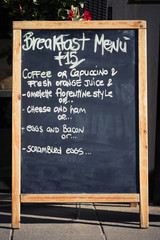 Breakfast Menu
£15
Coffee or Capuccino &
Fresh orange Juice &
- omelette florentine style
or...
- cheese and ham
or...
- eggs and Bacon
or...
- scrambled eggs...